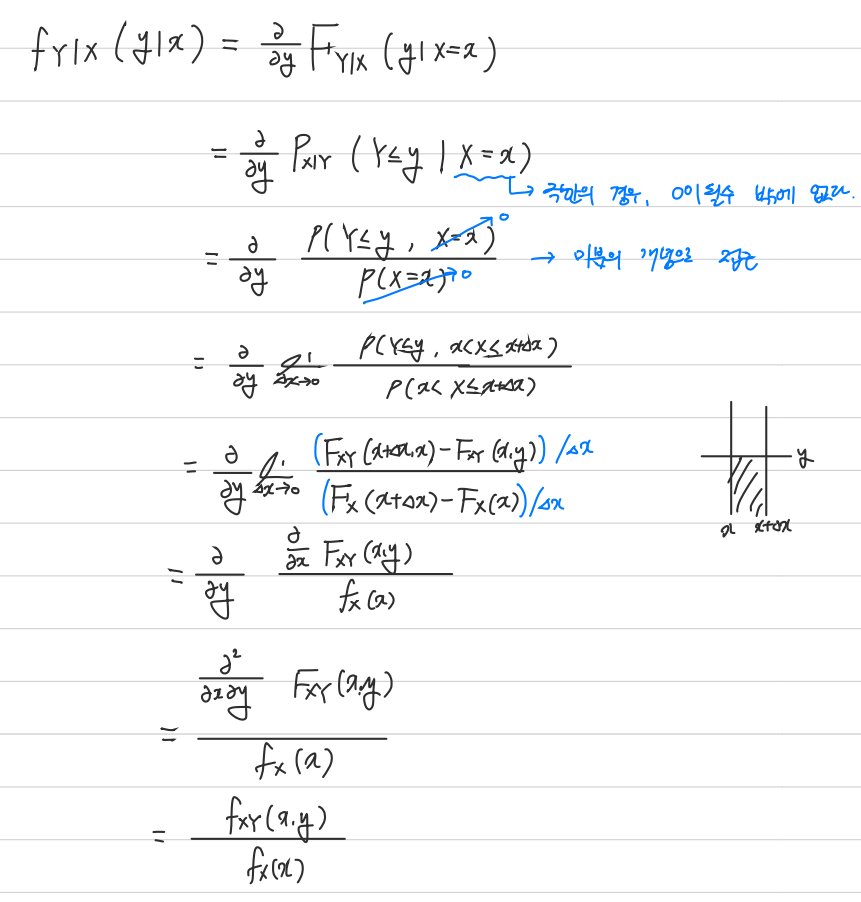 f_{Y|X} (y|x) = ∂/∂y F_{Y|X} (y| X=x)
= ∂/∂y P_{X|Y} (Y≤y | X=x)
→ 극한의 경우, 0이 될수 밖에 없다.
= ∂/∂y P(Y≤y, X=x) → 0 / P(X=x) → 0 → 미분의 개념으로 접근
= ∂/∂y lim_{Δx→0} P(Y≤y, x<X≤x+Δx) / P(x<X≤x+Δx)
= ∂/∂y lim_{Δx→0} (F_{XY}(x+Δx,x) - F_{XY}(x,y))/Δx / (F_X(x+Δx) - F_X(x))/Δx
y
x x+Δx
= ∂/∂y ∂/∂x F_{XY}(x,y) / f_X(x)
= ∂²/∂x∂y F_{XY}(x,y) / f_X(x)
= f_{XY}(x,y) / f_X(x)